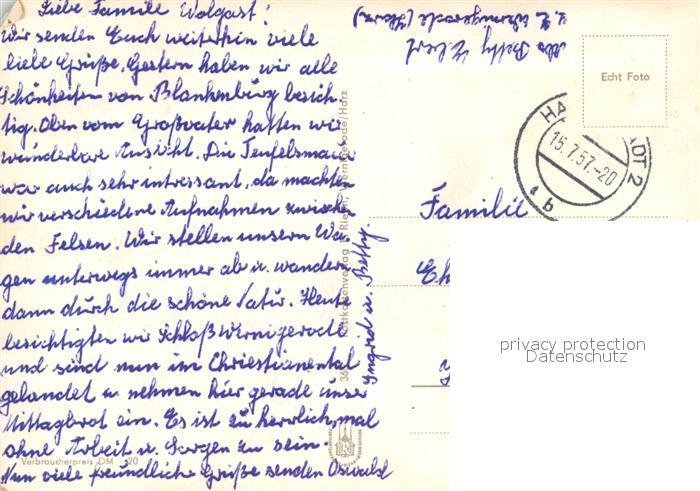 Liebe Familie Wolgast!
Wir senden Euch weiterhin viele
liebe Grüße. Gestern haben wir alle
Schönheiten von Blankenburg besich-
tig. Oben vom Großvater hatten wir
wunderbare Aussicht. Die Teufelsmauer
war auch sehr intressant, da machten
wir verschiedene Aufnahmen zwischen
den Felsen. Wir stellen unsern Wa-
gen unterwegs immer ab u. wandern
dann durch die schöne Natur. Heute
besichtigten wir Schloß Wernigerode
und sind nun im Christianental
gelandet u. nehmen hier gerade unser
Mittagbrot ein. Es ist zu herrlich, mal
ohne Arbeit u. Sorgen zu sein.
Nun viele freundliche Grüße senden Oswald
Ingrid u. Betty.
Verbraucherpreis DM 20
Betty
z. Z. Wernigerode (Harz)
Echt Foto
15.7.57.-20
b
Familie
privacy protection
Datenschutz